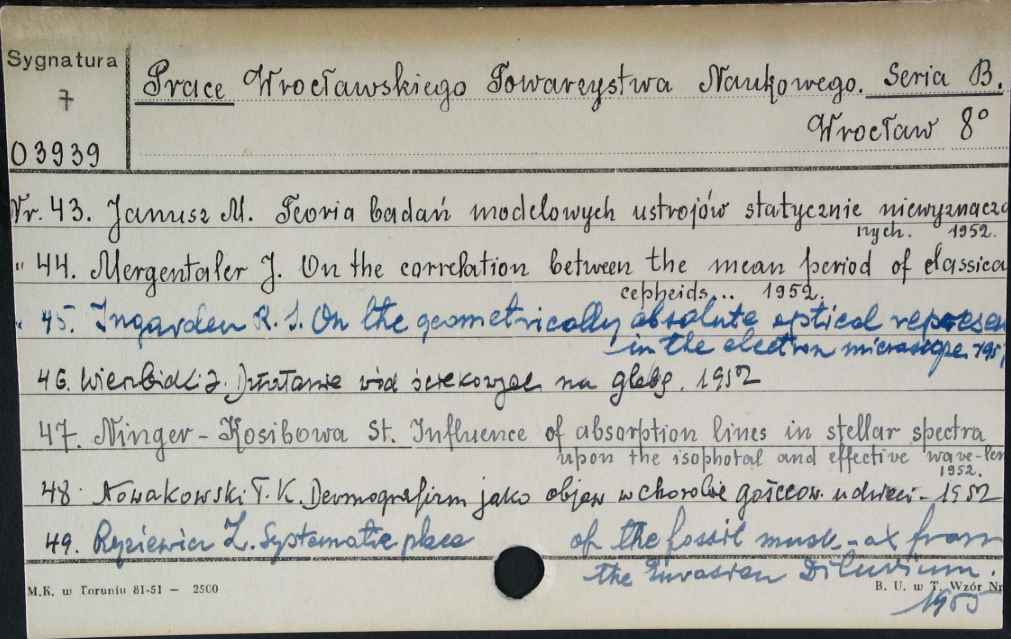 Sygnatura
7
03939
Prace Wrocławskiego Towarzystwa Naukowego. Seria B.
Wrocław 8°
Nr. 43. Janusz M. Teoria badań modelowych ustrojów statycznie niewyznacza
nych. 1952.
" 44. Mergentaler J. On the correlation between the mean period of classica
cepheids... 1952.
" 45. Ingarden R. S. On the geometrically absolute optical represen
in the electron microscope. 195
46. Wierzbicki J. Działanie wód ściekowych na glebę. 1952
47. Ninger-Kosibowa St. Influence of absorption lines in stellar spectra
upon the isophotal and effective wave-len
1952.
48. Nowakowski T. K. Dermografizm jako objaw w chorobie gośćcow. u dzieci - 1952
49. Ryziewicz Z. Systematic place of the fossil musk-ox from
the Eurasian Diluvium.
1955
M.K. w Toruniu 81-51 — 2500
B. U. w T. Wzór Nr